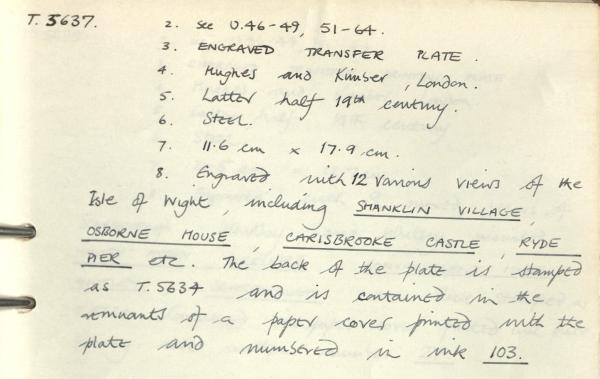 T.5637. 2. See U.46-49, 51-64.
3. ENGRAVED TRANSFER PLATE.
4. Hughes and Kimber, London.
5. Latter half 19th century.
6. STEEL.
7. 11.6 cm x 17.9 cm.
8. Engraved with 12 various views of the
Isle of Wight, including SHANKLIN VILLAGE,
OSBORNE HOUSE, CARISBROOKE CASTLE, RYDE
PIER etc. The back of the plate is stamped
as T.5634 and is contained in the
remnants of a paper cover printed with the
plate and numbered in ink 103.